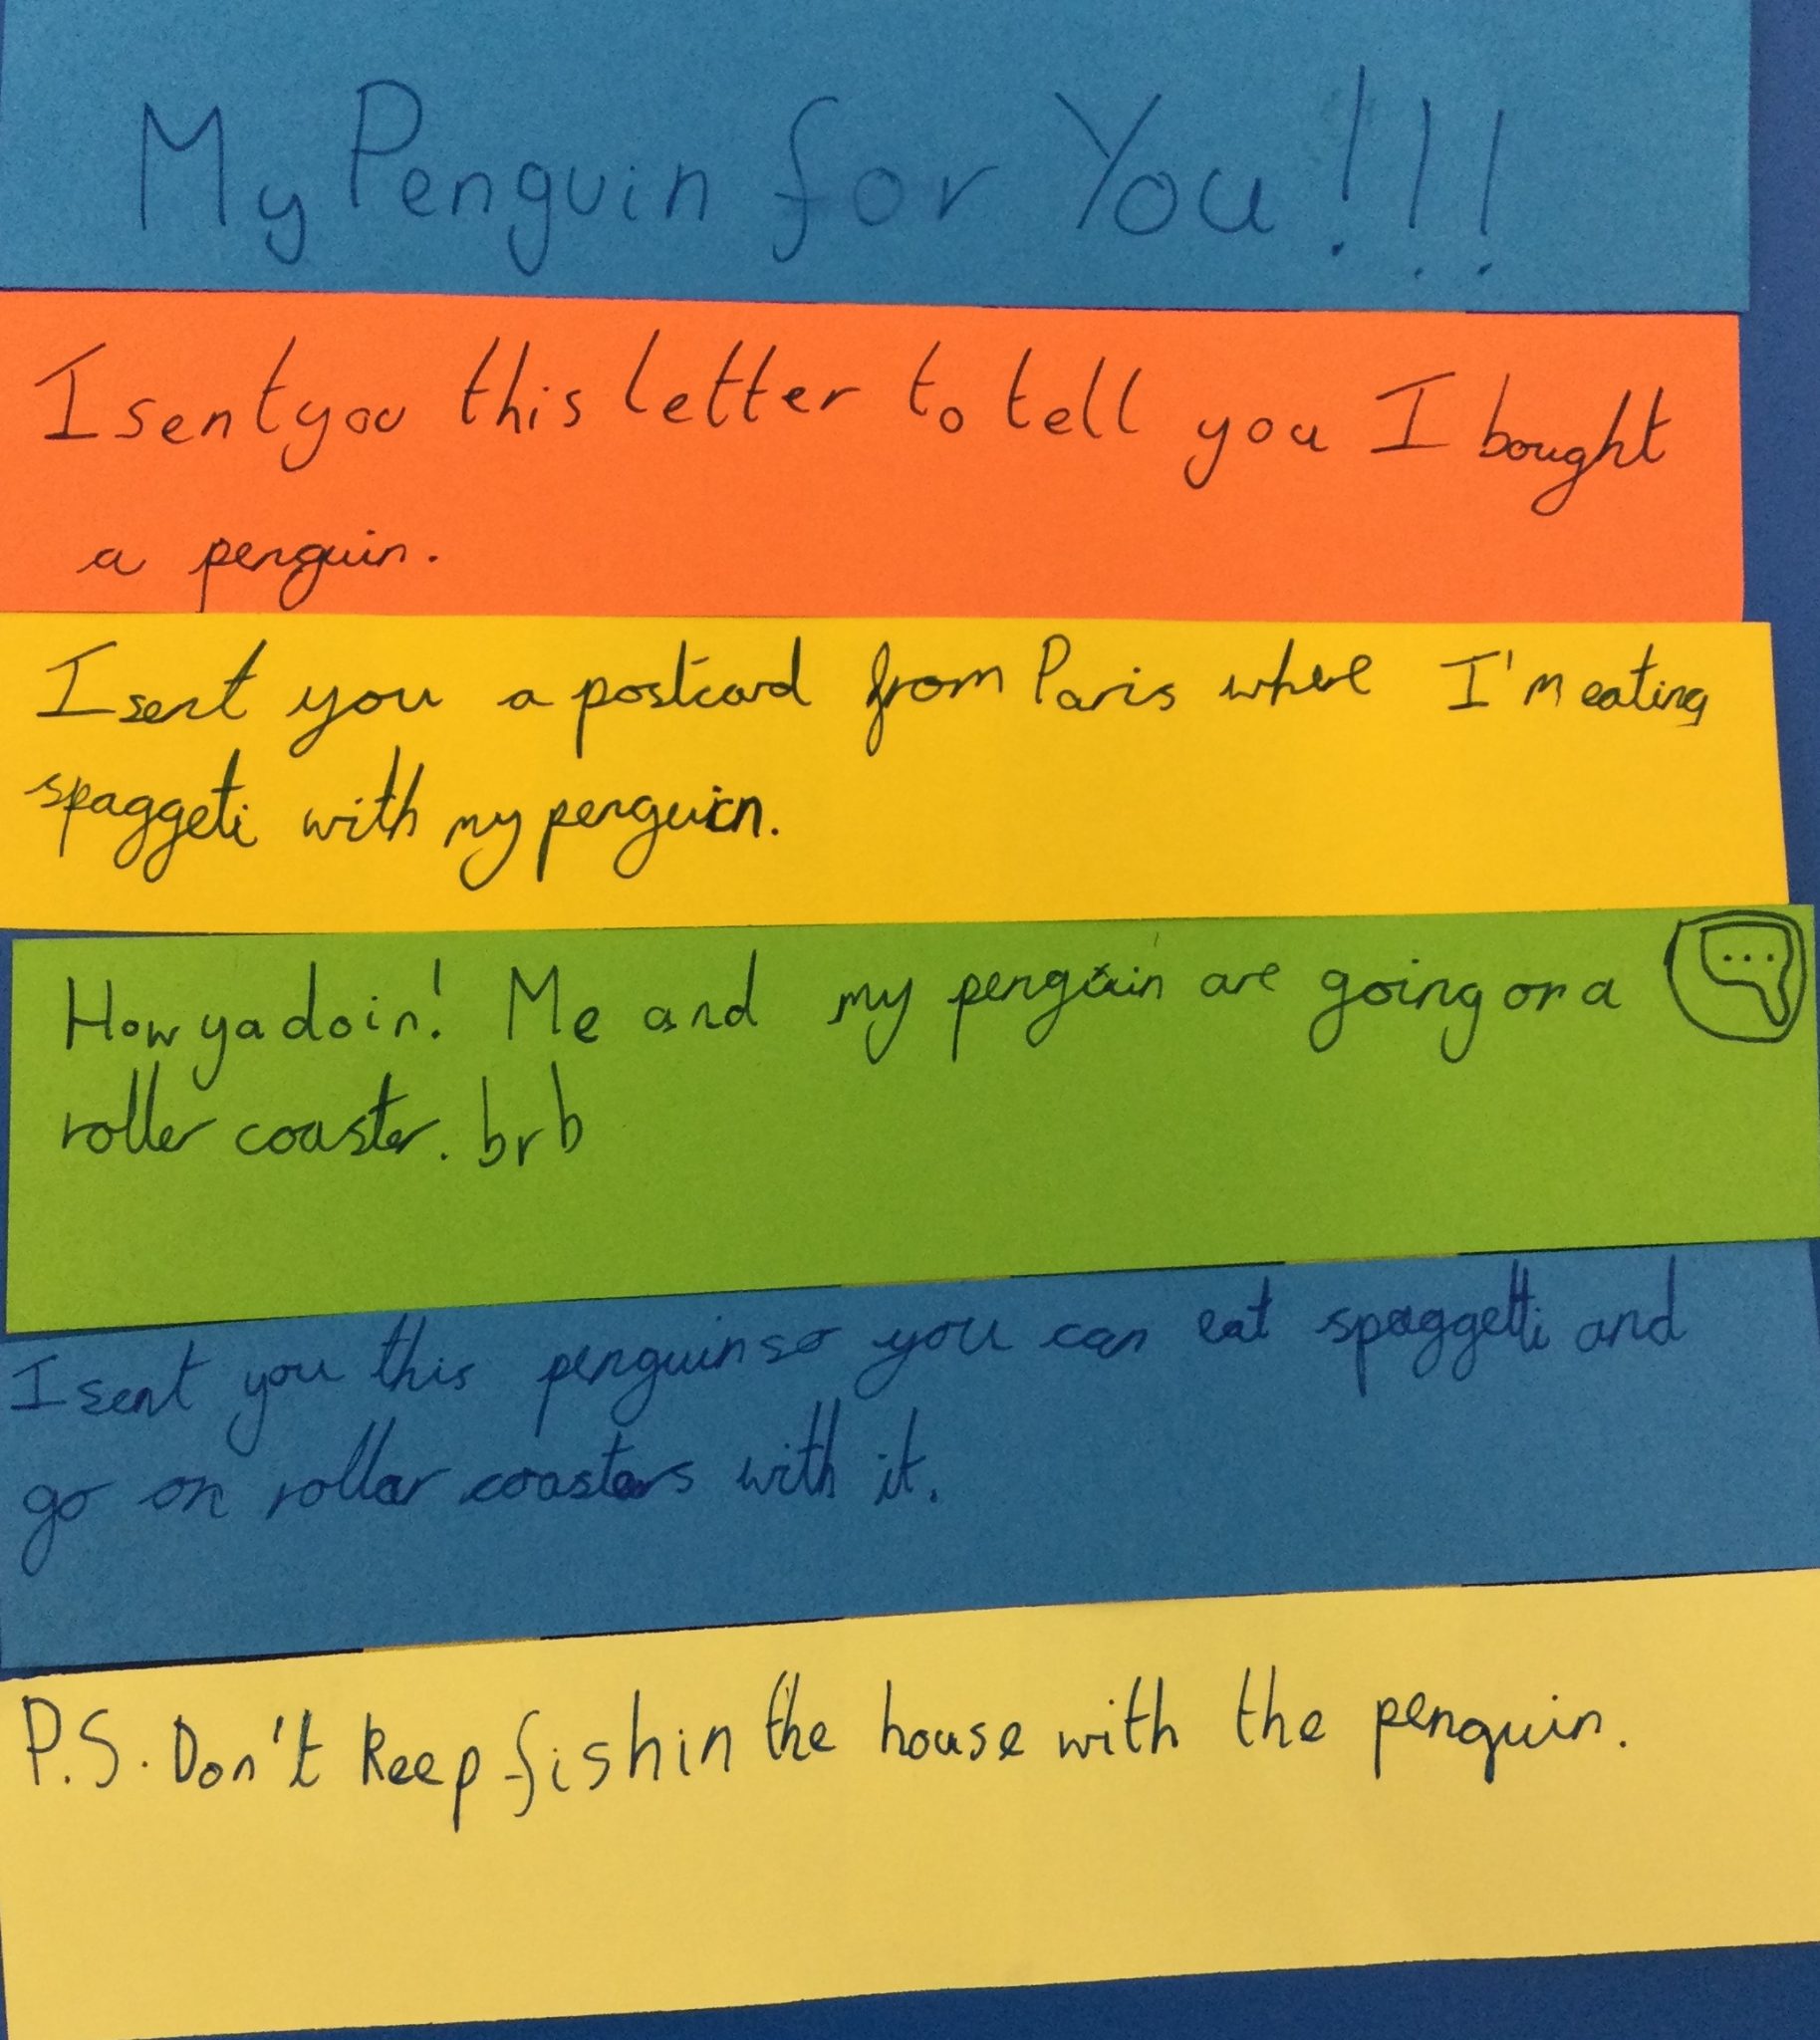 My Penguin for You!!!
I sent you this letter to tell you I bought
a penguin.
I sent you a postcard from Paris where I'm eating
spaggeti with my penguin.
How ya doin! Me and my penguin are going on a
roller coaster. brb
I sent you this penguin so you can eat spaggetti and
go on roller coasters with it.
P.S. Don't keep fish in the house with the penguin.